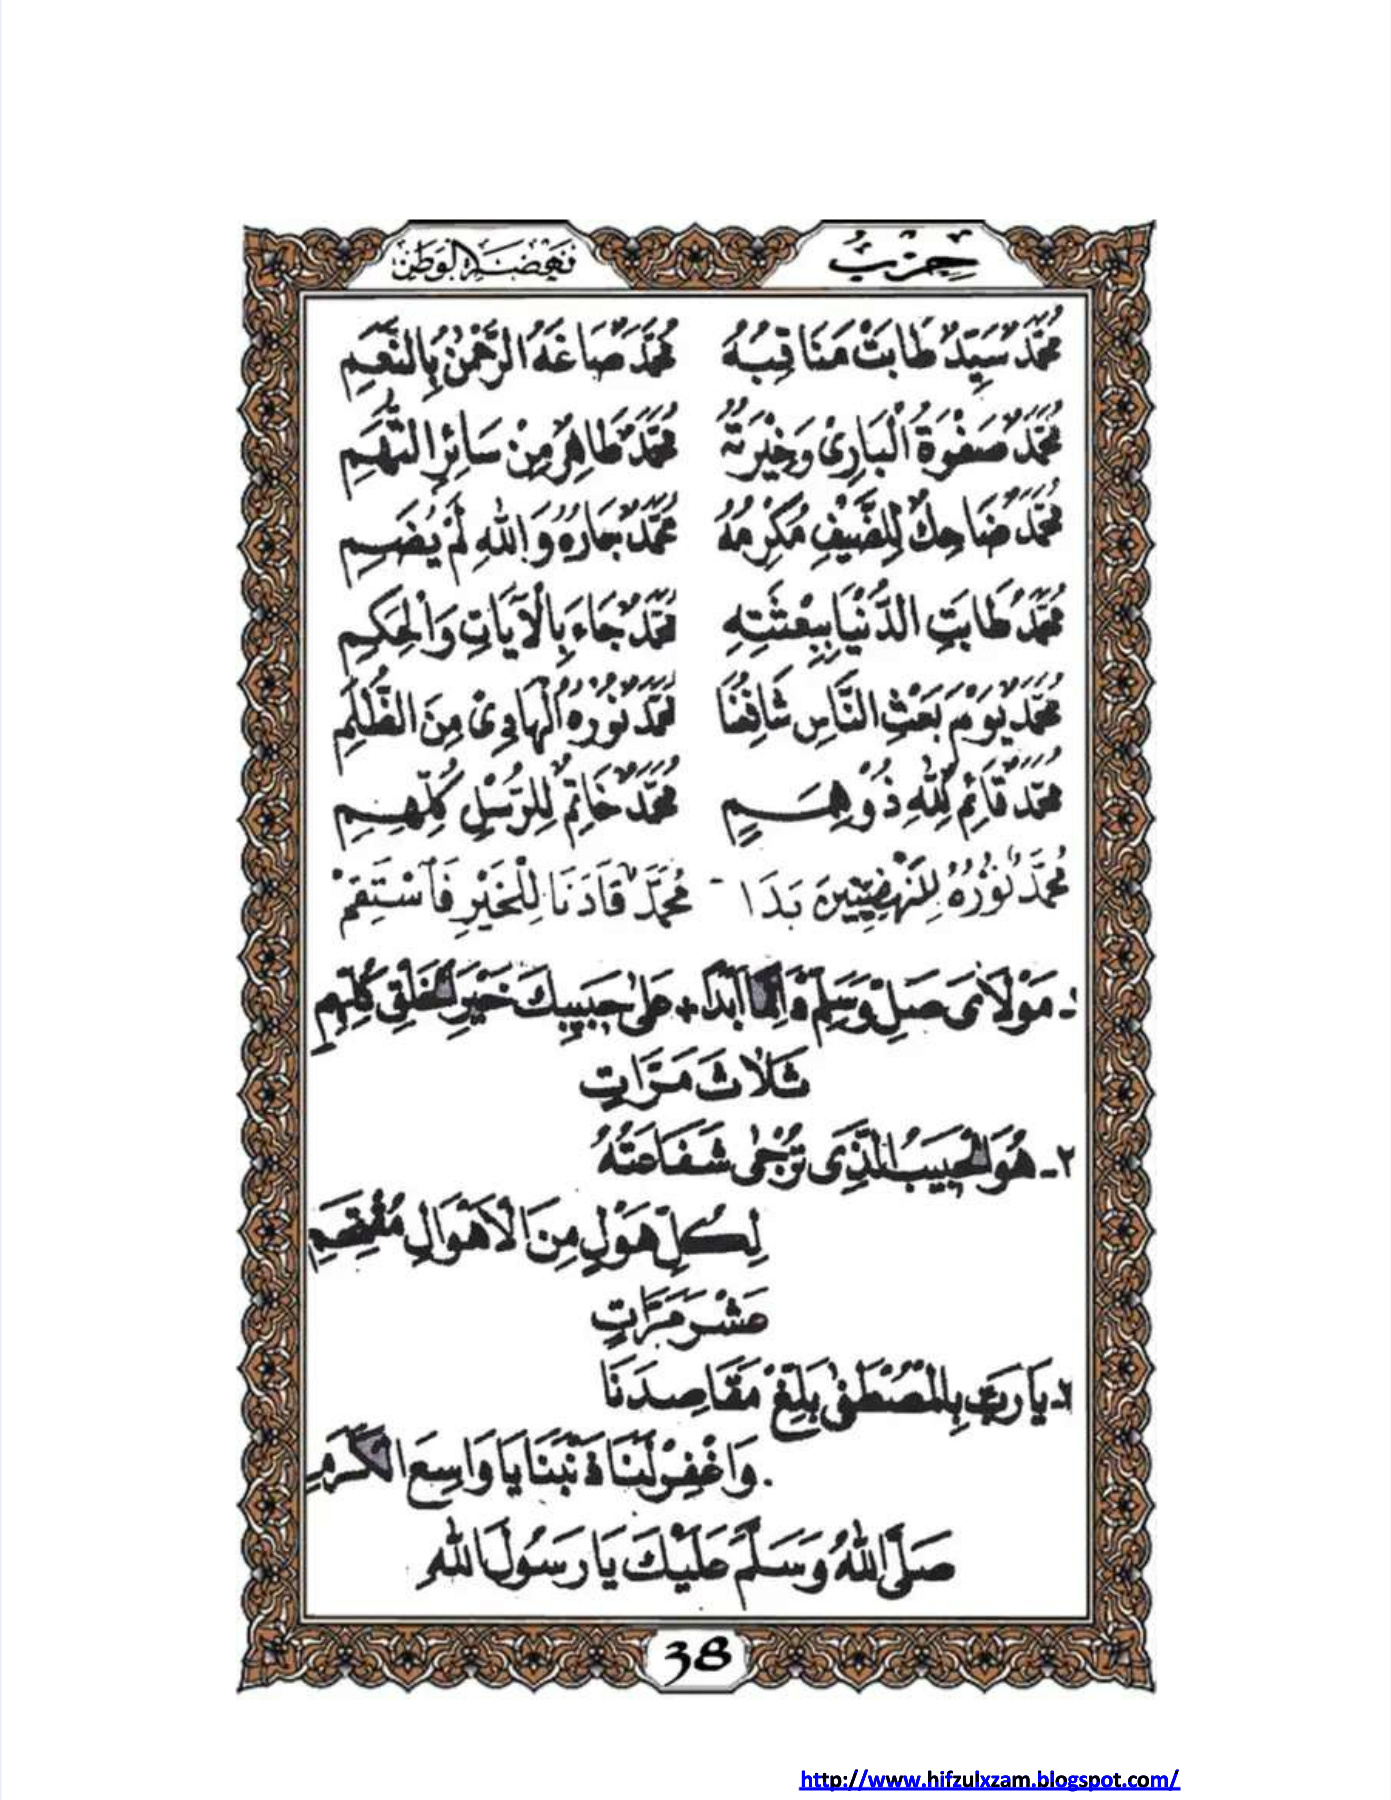 حِزْبُ نَهْضَةِ الْوَطَنِ
مُحَمَّدٌ سَيِّدٌ طَابَتْ مَنَاقِبُهُ مُحَمَّدٌ صَاغَهُ الرَّحْمٰنُ بِالنِّعَمِ
مُحَمَّدٌ صَفْوَةُ الْبَارِئْ وَخِيْرَتُهُ مُحَمَّدٌ طَاهِرٌ مِنْ سَائِرِ التُّهَمِ
مُحَمَّدٌ ضَاحِكٌ لِلضَّيْفِ مُكْرِمُهُ مُحَمَّدٌ جَارُهُ وَاللهِ لَمْ يُضَمِ
مُحَمَّدٌ طَابَتِ الدُّنْيَا بِبِعْثَتِهِ مُحَمَّدٌ جَاءَ بِالْآيَاتِ وَالْحِكَمِ
مُحَمَّدٌ يَوْمَ بَعْثِ النَّاسِ شَافِعُنَا مُحَمَّدٌ نُوْرُهُ الْهَادِئْ مِنَ الظُّلَمِ
مُحَمَّدٌ قَائِمٌ لِلّٰهِ ذُوْ هِمَمٍ مُحَمَّدٌ خَاتِمٌ لِلرُّسْلِ كُلِّهِمِ
مُحَمَّدٌ نُوْرُهُ لِلنَّهْضِيِّيْنَ بَدَا - مُحَمَّدٌ قَادَنَا لِلْخَيْرِ فَاسْتَقِمْ
١- مَوْلَايَ صَلِّ وَسَلِّمْ دَائِمًا أَبَدًا + عَلَى حَبِيْبِكَ خَيْرِ الْخَلْقِ كُلِّهِمِ
ثَلَاثَ مَرَّاتٍ
٢- هُوَ الْحَبِيْبُ الَّذِيْ تُرْجٰى شَفَاعَتُهُ
لِكُلِّ هَوْلٍ مِنَ الْأَهْوَالِ مُقْتَحِمِ
عَشْرَ مَرَّاتٍ
٣- يَا رَبِّ بِالْمُصْطَفٰى بَلِّغْ مَقَاصِدَنَا
وَاغْفِرْ لَنَا ذَنْبَنَا يَا وَاسِعَ الْكَرَمِ
صَلَّى اللهُ وَسَلَّمَ عَلَيْكَ يَا رَسُوْلَ اللهِ
38
http://www.hifzulxzam.blogspot.com/